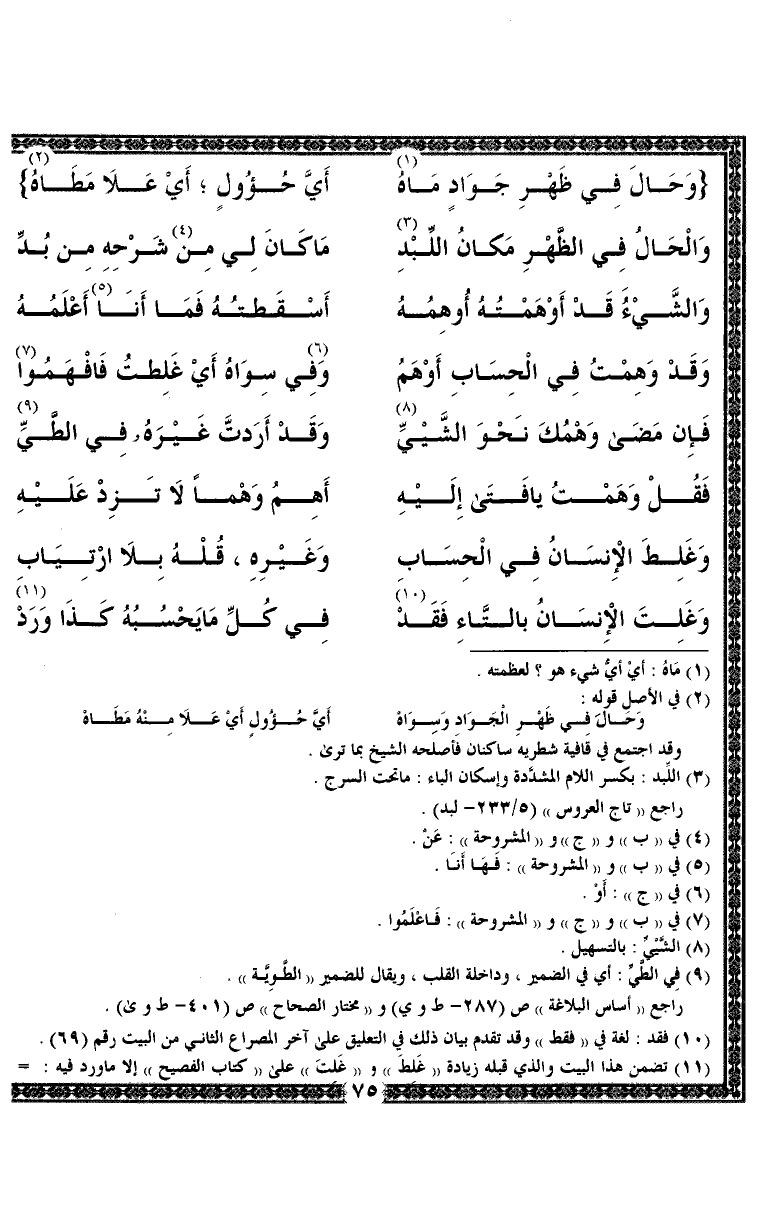 {وَحَـــالَ فــي ظَهْــرِ جَــوَادٍ مَــاهُ (١) أَيَّ حُــؤُولٍ ؛ أَيْ عَــلَا مَطَــاهُ} (٢)
وَالْحَالُ فـي الظَّهْرِ مَكَانُ اللِّبْدِ (٣) مَاكَـانَ لـي مِـنْ (٤) شَرْحِهِ مِن بُدِّ
وَالشَّـيْءُ قَـدْ أَوْهَمْتُـهُ أُوهِمُـهُ أَسْـقَطـتُـهُ فَمَـا أَنَـا (٥) أَعْلَمُـهُ
وَقَـدْ وَهِمْـتُ فـي الْحِسَـابِ أَوْهَمُ وَفي (٦) سِـوَاهُ أَيْ غَلِطـتُ فَافْهَمُوا (٧)
فَـإِن مَضَىٰ وَهْمُكَ نَحْوَ الشَّـيِّ (٨) وَقَـدْ أَرَدتَّ غَـيْرَهُ فـي الطَّـيِّ (٩)
فَقُــلْ وَهَمْــتُ يافَتَىٰ إِلَيْــهِ أَهِــمُ وَهْمــاً لَا تَــزِدْ عَلَيْــهِ
وَغَـلِـطَ الْإِنْسَـانُ فـي الْحِسَـابِ وَغَـيْرِهِ ، قُلْـهُ بِـلَا ارْتِيَـابِ
وَغَلِـتَ الْإِنْسَـانُ بالتَّـاءِ فَقَـدْ (١٠) فــي كُــلِّ مَايَحْسُـبُهُ كَـذَا وَرَدْ (١١)
(١) مَاهُ : أيْ أيُّ شيء هو ؟ لعظمته .
(٢) في الأصل قوله :
وَحَـالَ فـي ظَهْـرِ الْجَـوَادِ وَسِـوَاهْ أَيَّ حُـؤُولٍ أَيْ عَـلَا مِـنْهُ مَطَـاهْ
وقد اجتمع في قافية شطريه ساكنان فأصلحه الشيخ بما ترىٰ .
(٣) اللِّبد : بكسر اللام المشدَّدة وإسكان الباء : ماتحت السرج .
راجع (( تاج العروس )) (٢٣٣/٥- لبد) .
(٤) في (( ب )) و (( ج )) و (( المشروحة )) : عَنْ .
(٥) في (( ب )) و (( المشروحة )) : فَـهَـا أَنَـا .
(٦) في (( ج )) : أَوْ .
(٧) في (( ب )) و (( ج )) و (( المشروحة )) : فَـاعْلَمُوا .
(٨) الشَّيِّ : بالتسهيل .
(٩) فِي الطَّيِّ : أي في الضمير ، وداخلة القلب ، ويقال للضمير (( الطَّوِيَّة )) .
راجع (( أساس البلاغة )) ص (٢٨٧- ط و ي) و (( مختار الصحاح )) ص (٤٠١- ط و ىٰ) .
(١٠) فقد : لغة في (( فقط )) وقد تقدم بيان ذلك في التعليق علىٰ آخر المصراع الثاني من البيت رقم (٦٩) .
(١١) تضمن هذا البيت والذي قبله زيادة (( غَلِطَ )) و (( غَلِتَ )) علىٰ (( كتاب الفصيح )) إلا ماورد فيه : =
٧٥